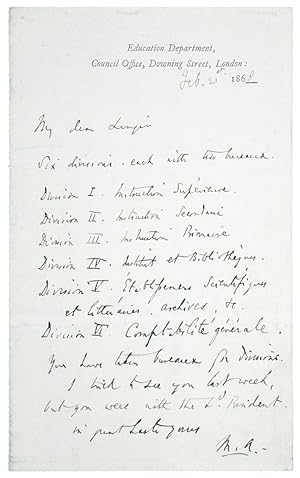 Education Department,
Council Office, Downing Street, London:
Feb. 21st. 1868
My dear Lingen
Six divisions. each with two bureaux.
Division I. Instruction Supérieure.
Division II. Instruction Secondaire
Division III. Instruction Primaire
Division IV. Institut et Bibliothèques.
Division V. Établissemens Scientifiques
et littéraires, archives, &c.
Division VI Comptabilité générale.
You have taken bureaux for divisions.
I tried to see you last week,
but you were with the Ld. President.
in great haste yours
M. A.